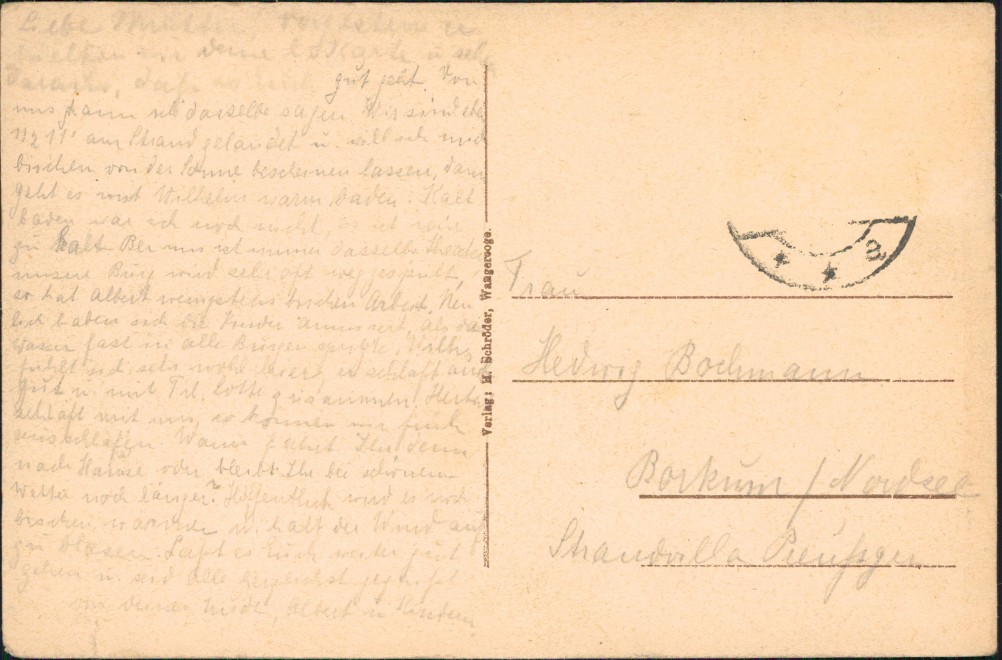 Liebe Mutter, Vorgestern er
hielten wir Deine l. Karte u.
daraus, daß es Euch gut geht. Von
uns kann ich dasselbe sagen. Wir sind
1/2 11 am Strand gelandet u. will ich mich
bischen von der Sonne bescheinen lassen, dann
geht es mit Wilhelm warm baden. Kalt
baden war ich noch nicht, es ist mir
zu kalt. Bei uns ist immer dasselbe
unsere Burg wird sehr oft weggespült,
so hat Albert wenigstens bischen Arbeit. Neu
lich haben sich die Kinder amüsiert, als das
Wasser fast in alle Burgen spülte.
fühlt sich sehr wohl hier, er schläft
gut u. mit Frl. Lotte zusammen, Herta
schläft mit uns, so können wir früh
ausschlafen. Wann fahrt Ihr denn
nach Hause oder bleibt Ihr bei schönem
Wetter noch länger? Hoffentlich wird es noch
bischen wärmer u. hält der Wind auf
zu blasen. Laßt es Euch weiter gut
gehen u. seid alle herzlichst gegrüßt
von Deiner Albert u. Kindern
Verlag: H. Schröder, Wangerooge.
Frau
Hedwig Bochmann
Borkum / Nordsee
Strandvilla